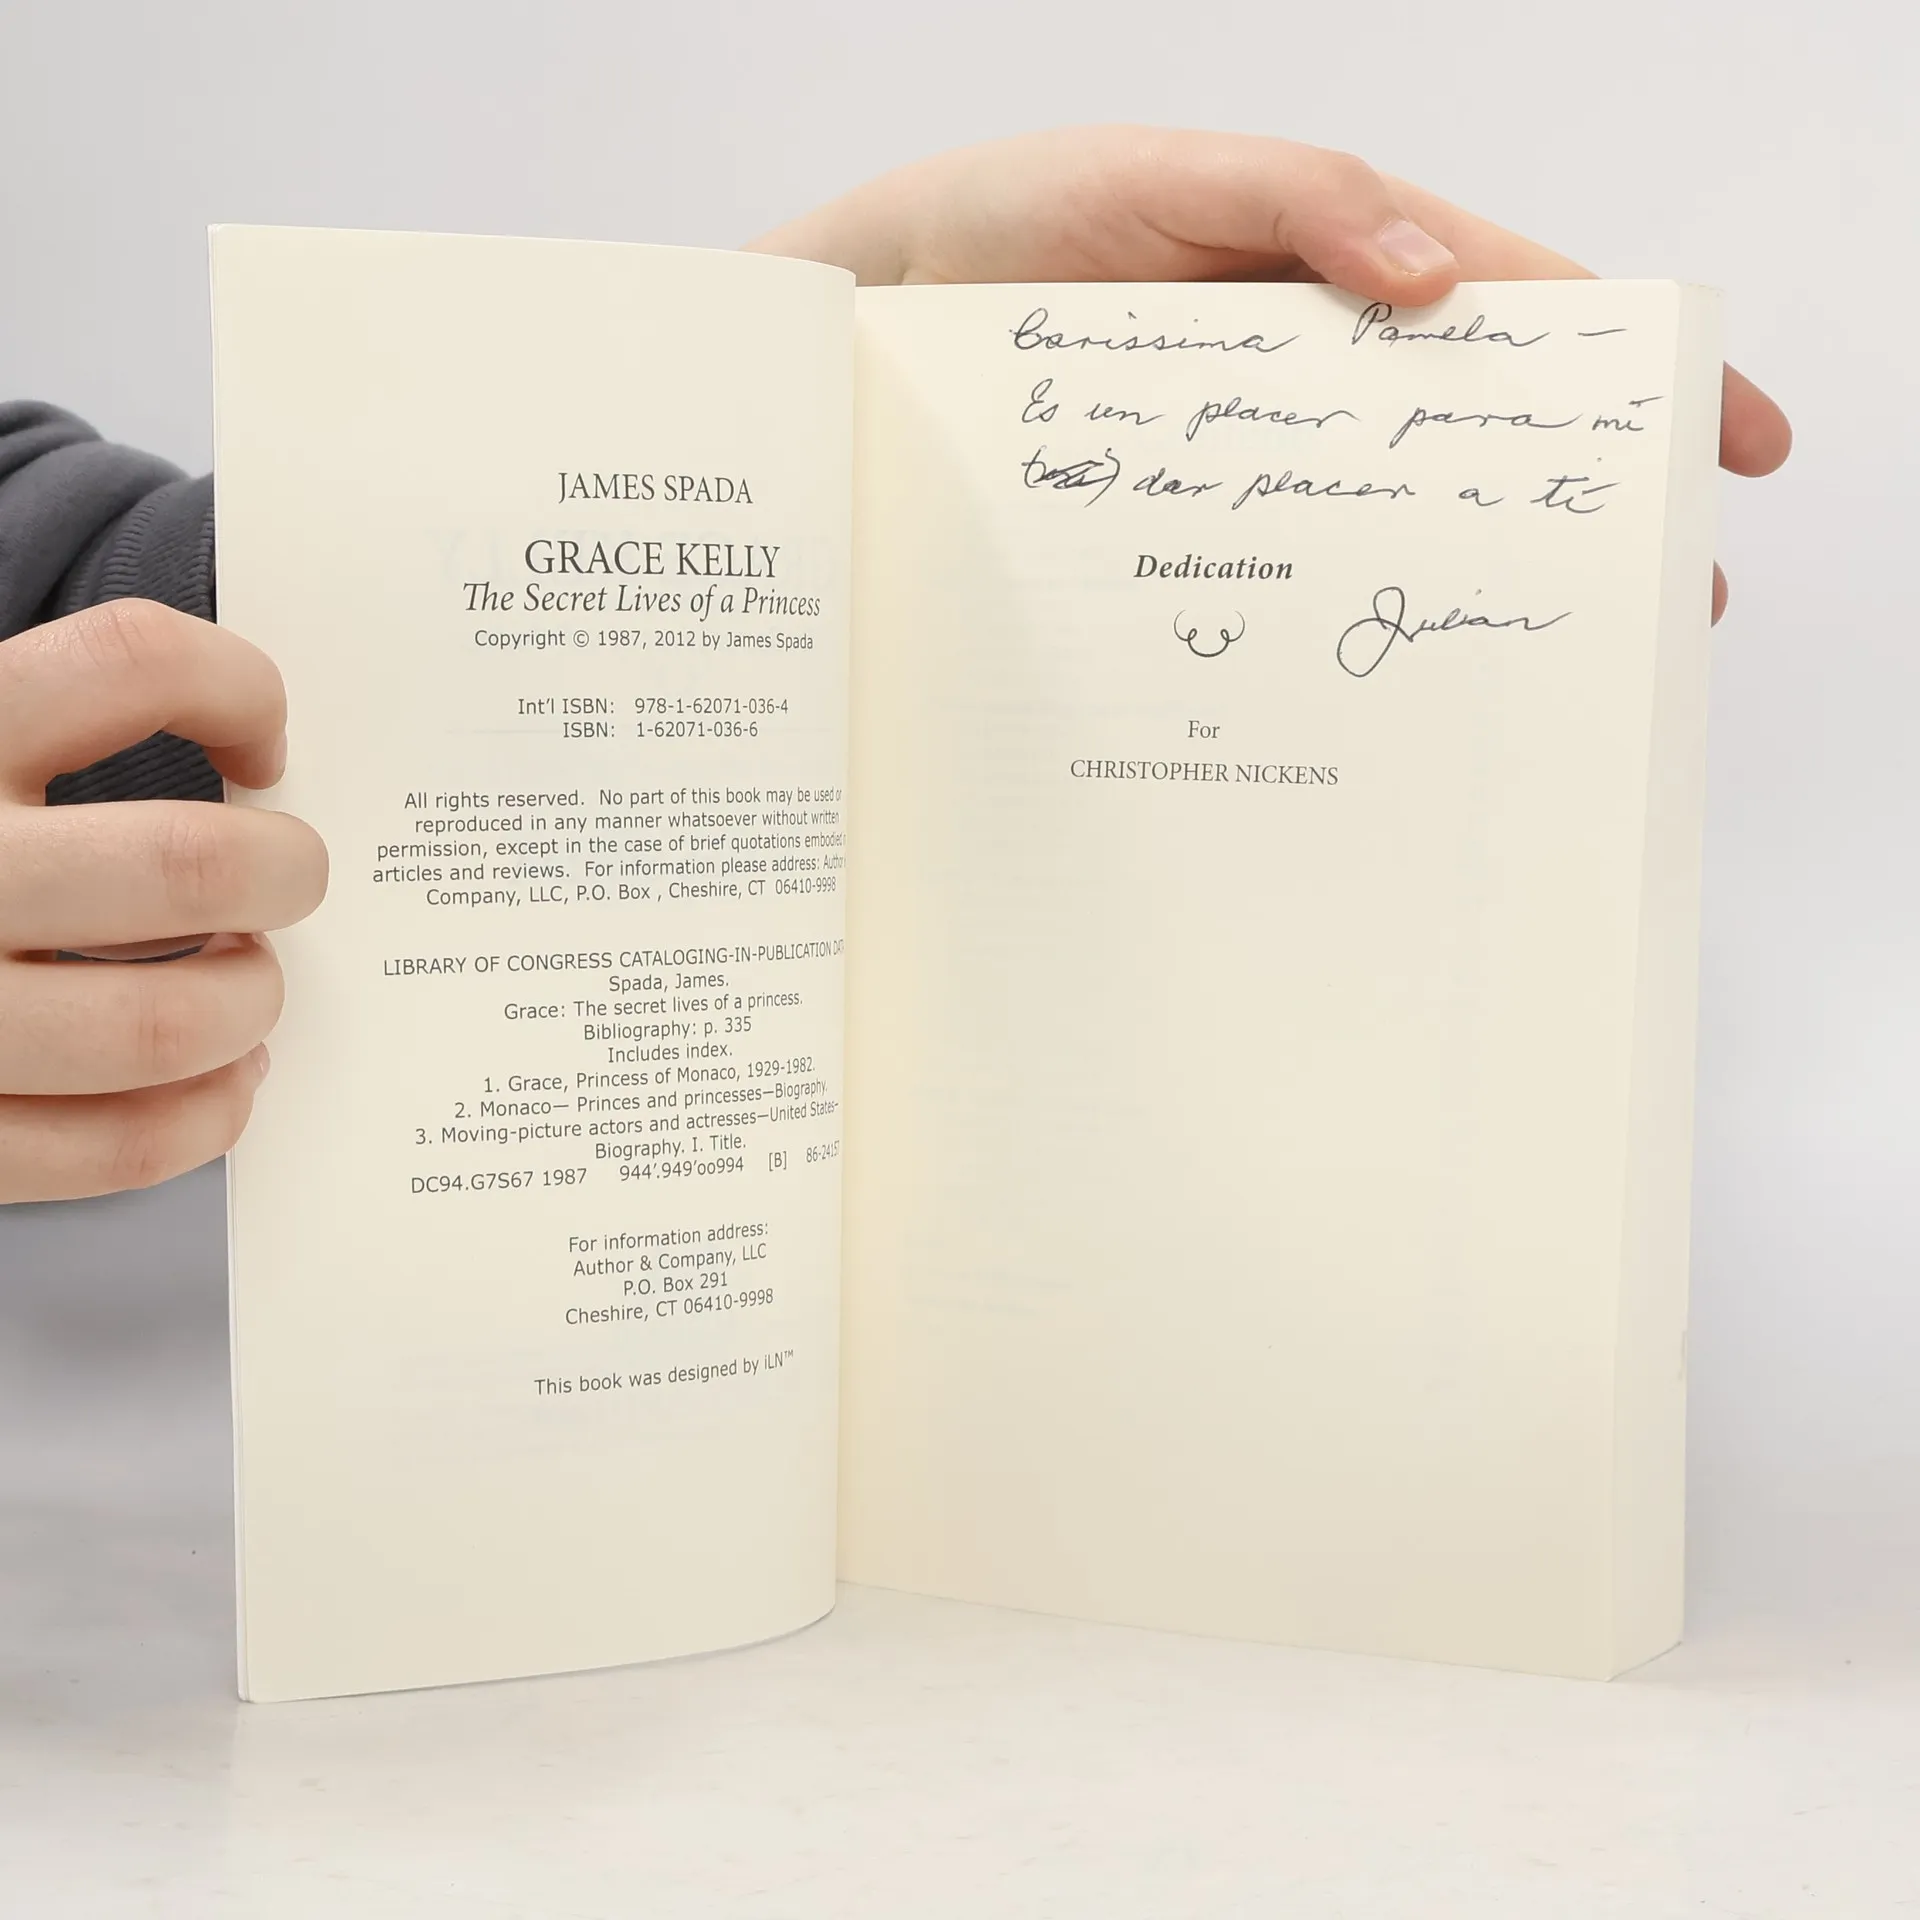 JAMES SPADA
GRACE KELLY
The Secret Lives of a Princess
Copyright © 1987, 2012 by James Spada
Int'l ISBN: 978-1-62071-036-4
ISBN: 1-62071-036-6
All rights reserved. No part of this book may be used or
reproduced in any manner whatsoever without written
permission, except in the case of brief quotations embodied
articles and reviews. For information please address: Author
Company, LLC, P.O. Box , Cheshire, CT 06410-9998
LIBRARY OF CONGRESS CATALOGING-IN-PUBLICATION
Spada, James.
Grace: The secret lives of a princess.
Bibliography: p. 335
Includes index.
1. Grace, Princess of Monaco, 1929-1982.
2. Monaco— Princes and princesses—Biography.
3. Moving-picture actors and actresses—United States-
Biography. I. Title.
DC94.G7S67 1987 944'.949'oo994 [B]
For information address:
Author & Company, LLC
P.O. Box 291
Cheshire, CT 06410-9998
This book was designed by iLN™
Carissima Pamela —
Es un placer para mi
dar placer a ti
Dedication
Julian
For
CHRISTOPHER NICKENS